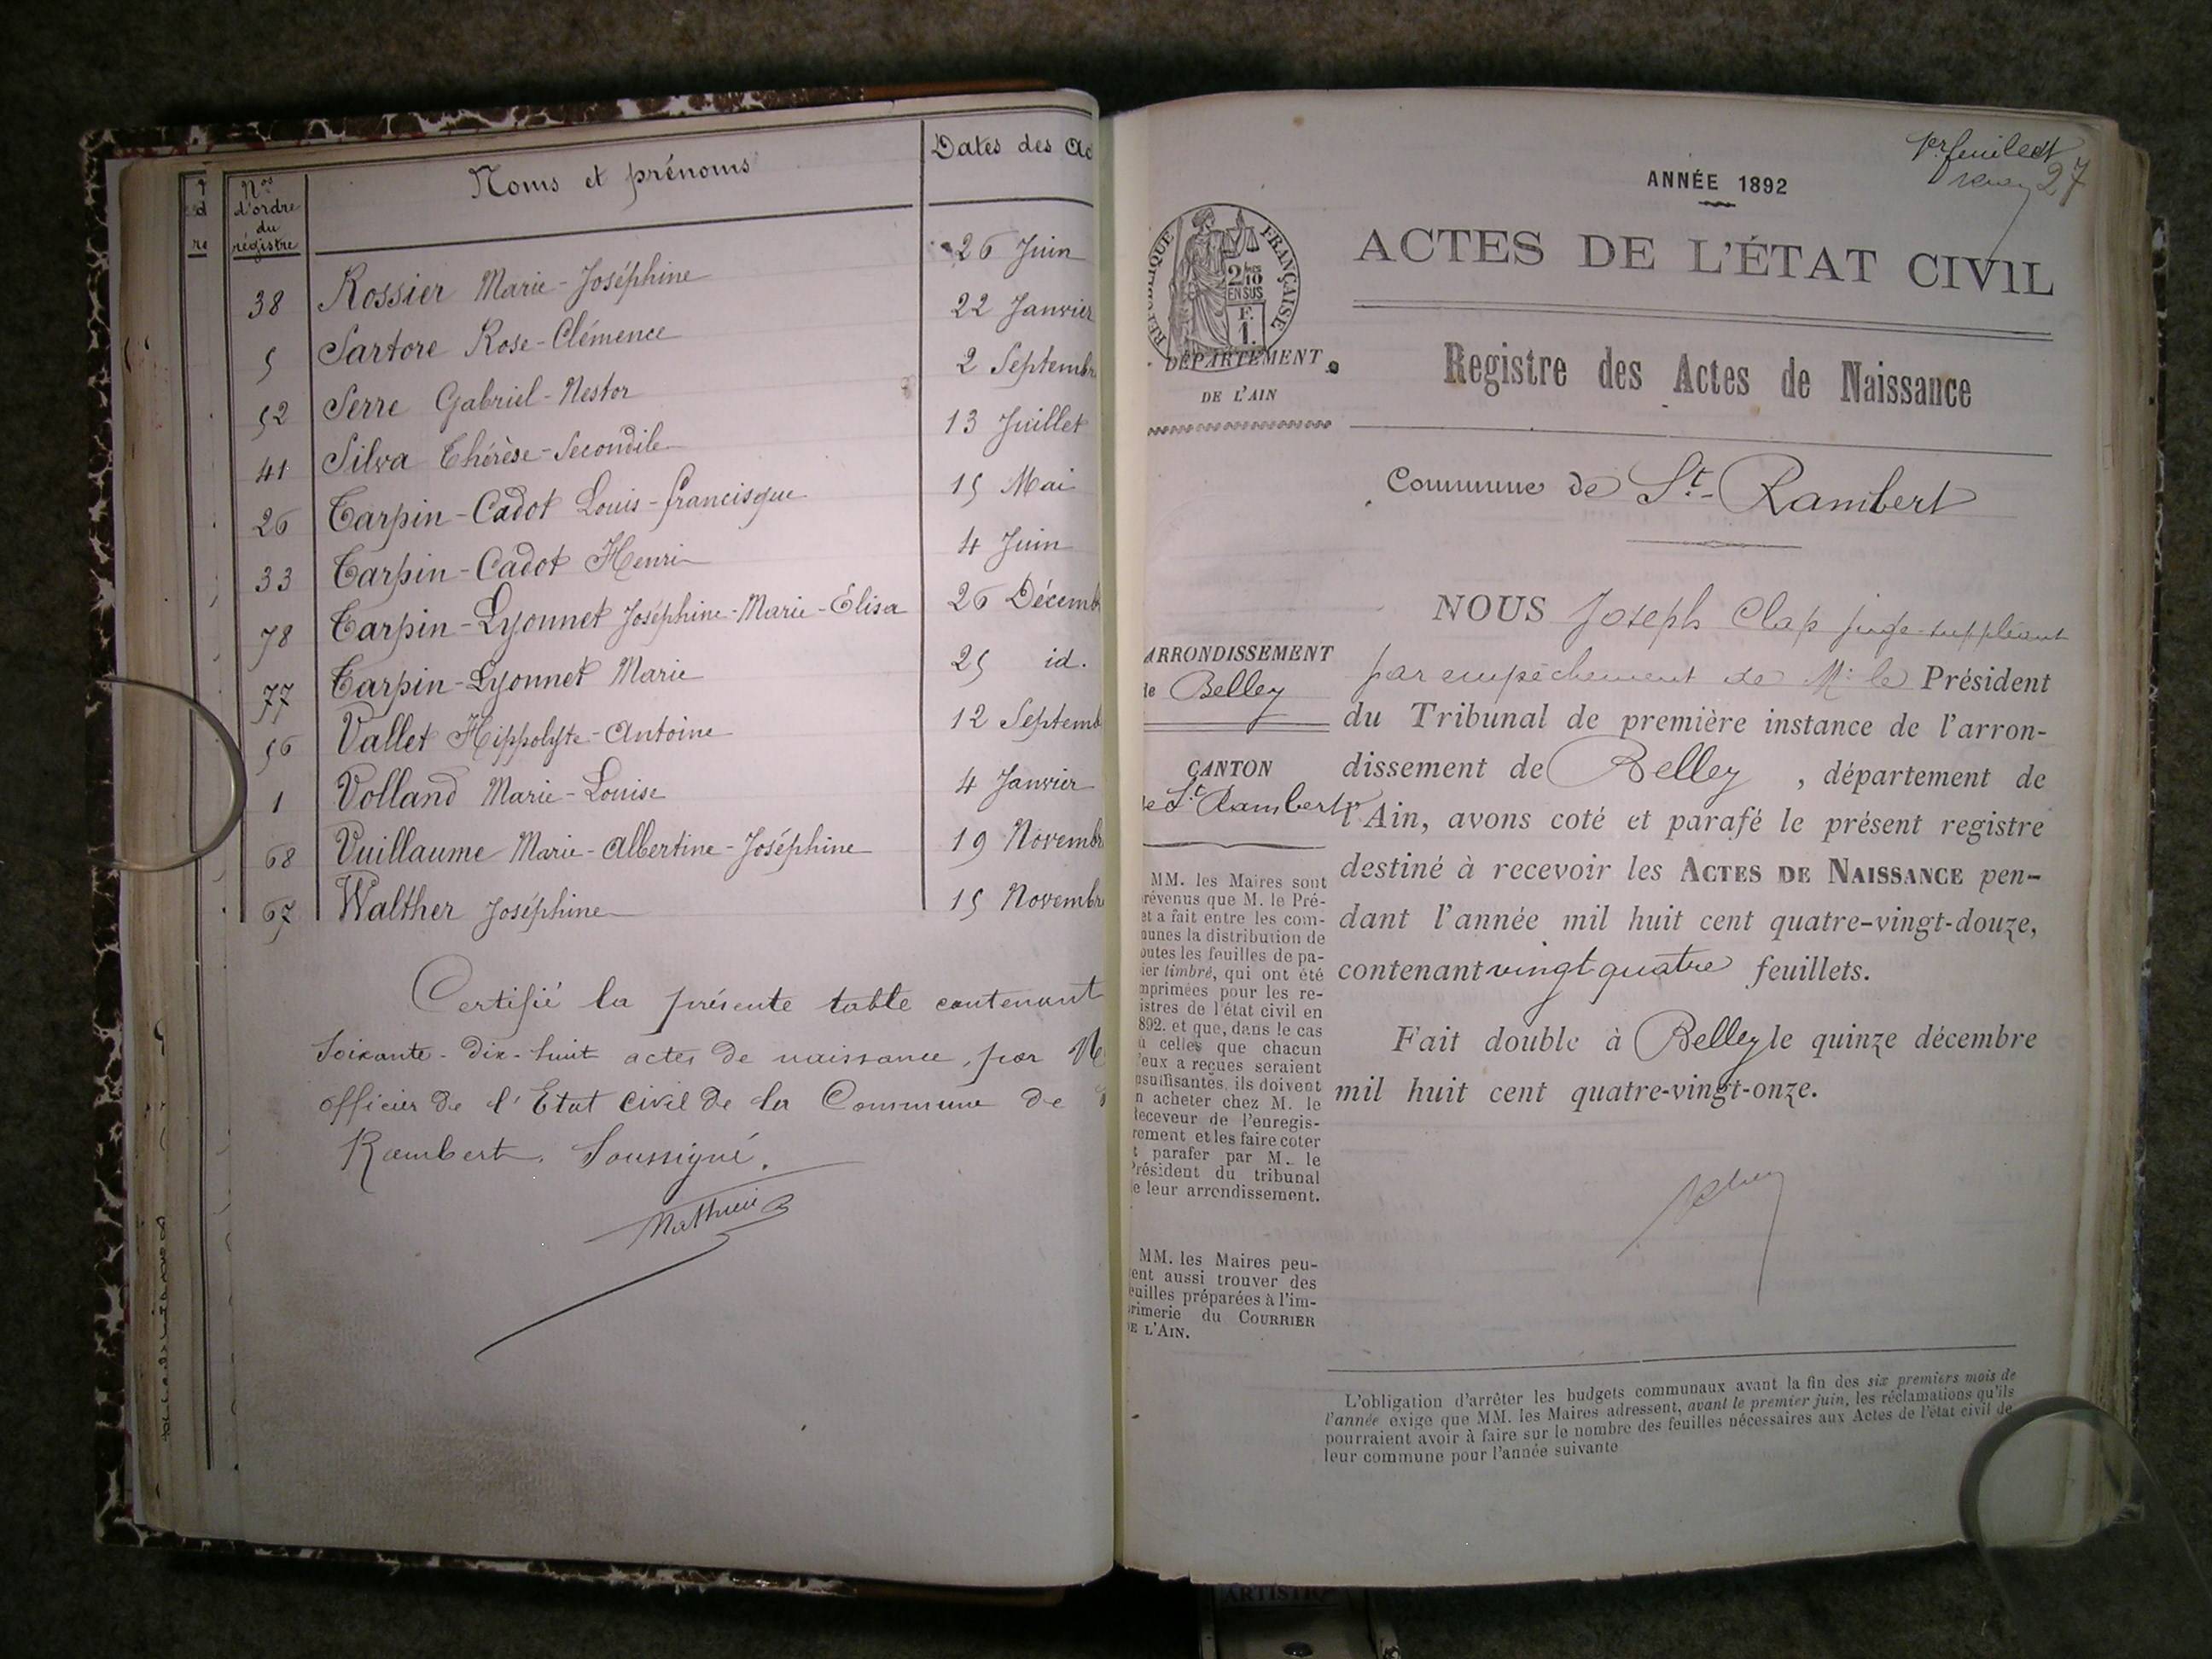 Nos d'ordre du régistre
Noms et prénoms
Dates des Ac
38 Rossier Marie-Joséphine 26 Juin
5 Sartore Rose-Clémence 22 Janvier
52 Serre Gabriel-Nestor 2 Septembre
41 Silva Thérèse-Secondile 13 Juillet
26 Tarpin-Cadot Louis-francisque 15 Mai
33 Tarpin-Cadot Henri 4 Juin
78 Tarpin-Lyonnet Joséphine-Marie-Elisa 26 Décemb
77 Tarpin-Lyonnet Marie 25 id.
56 Vallet Hippolyte-Antoine 12 Septemb
1 Volland Marie-Louise 4 Janvier
68 Vuillaume Marie-Albertine-Joséphine 19 Novembr
67 Walther Joséphine 15 Novembre
Certifié la présente table contenant
soixante-dix-huit actes de naissance, par
officier de l'Etat civil de la Commune de
Rambert, Soussigné.
Mathieu
1er feuillet
27
ANNÉE 1892
ACTES DE L'ÉTAT CIVIL
RÉPUBLIQUE FRANÇAISE
2/10
EN SUS
F.
1.
DÉPARTEMENT
DE L'AIN
Registre des Actes de Naissance
Commune de St-Rambert
ARRONDISSEMENT
de Belley
CANTON
de St Rambert
MM. les Maires sont
révenus que M. le Pré-
et a fait entre les com-
munes la distribution de
outes les feuilles de pa-
ier timbré, qui ont été
mprimées pour les re-
istres de l'état civil en
892. et que, dans le cas
ù celles que chacun
'eux a reçues seraient
nsuffisantes, ils doivent
n acheter chez M. le
Receveur de l'enregis-
rement et les faire coter
t parafer par M. le
Président du tribunal
e leur arrondissement.
MM. les Maires peu-
ent aussi trouver des
euilles préparées à l'im-
rimerie du COURRIER
DE L'AIN.
NOUS Joseph Clap juge-suppléant
par empêchement de Mr le Président
du Tribunal de première instance de l'arron-
dissement de Belley, département de
l'Ain, avons coté et parafé le présent registre
destiné à recevoir les ACTES DE NAISSANCE pen-
dant l'année mil huit cent quatre-vingt-douze,
contenant vingt quatre feuillets.
Fait double à Belley le quinze décembre
mil huit cent quatre-vingt-onze.
L'obligation d'arrêter les budgets communaux avant la fin des six premiers mois de
l'année exige que MM. les Maires adressent, avant le premier juin, les réclamations qu'ils
pourraient avoir à faire sur le nombre des feuilles nécessaires aux Actes de l'état civil de
leur commune pour l'année suivante